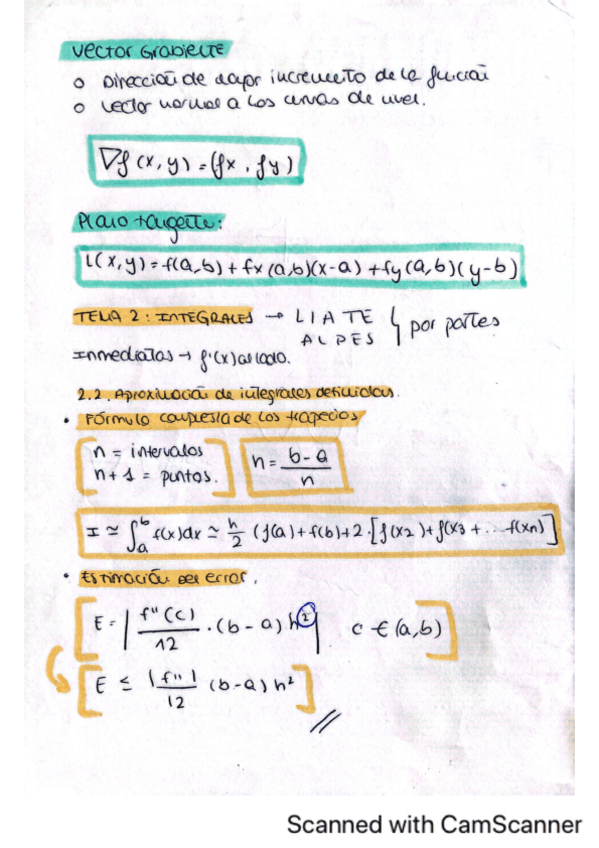 Vector Gradiente
o Dirección de mayor incremento de la función
o vector normal a las curvas de nivel.
∇f(x,y) = (fx, fy)
Plano tangente:
L(x,y) = f(a,b) + fx(a,b)(x-a) + fy(a,b)(y-b)
TEMA 2: INTEGRALES → LIATE
ALPES } por partes
Inmediatas → f'(x) al lado.
2.2. Aproximación de integrales definidas.
• Fórmula compuesta de los trapecios
[n = intervalos
n+1 = puntos.] h = b-a / n
I ≃ ∫_a^b f(x)dx ≃ h/2 (f(a)+f(b)+2·[f(x2)+f(x3+...f(xn)]
• Estimación del error.
E = | f''(c) / 12 · (b-a) h² | c ∈ (a,b)
E ≤ |f''| / 12 (b-a) h²
Scanned with CamScanner